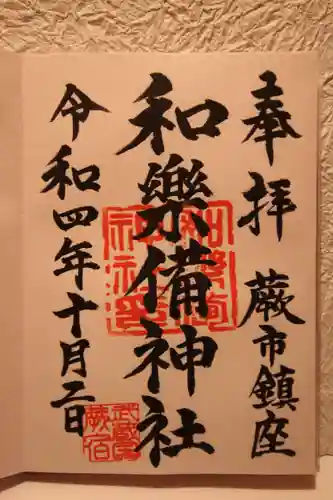 奉拝 蕨市鎮座
和樂備神社
令和四年十月二日
武蔵
蕨宿